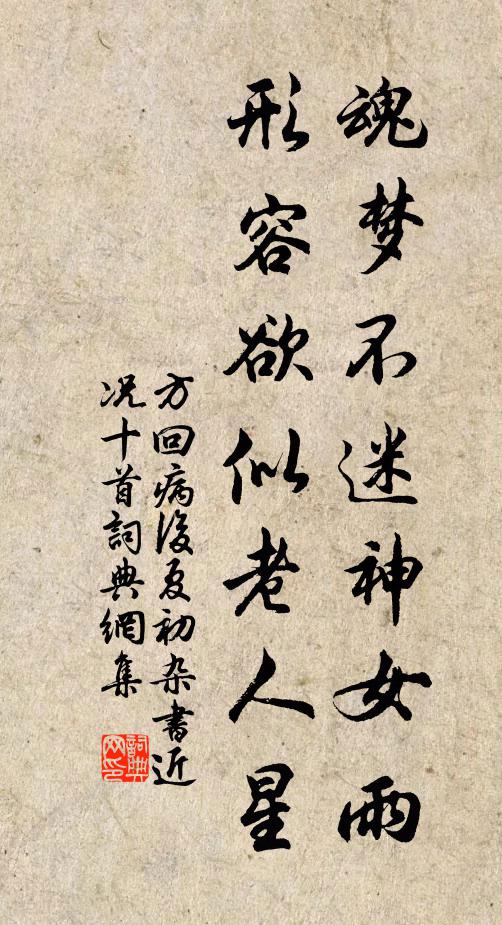 魂梦不迷神女雨
形容欲似老人星
方回病後夏初杂書近
况十首詞典網集
詞典
网印